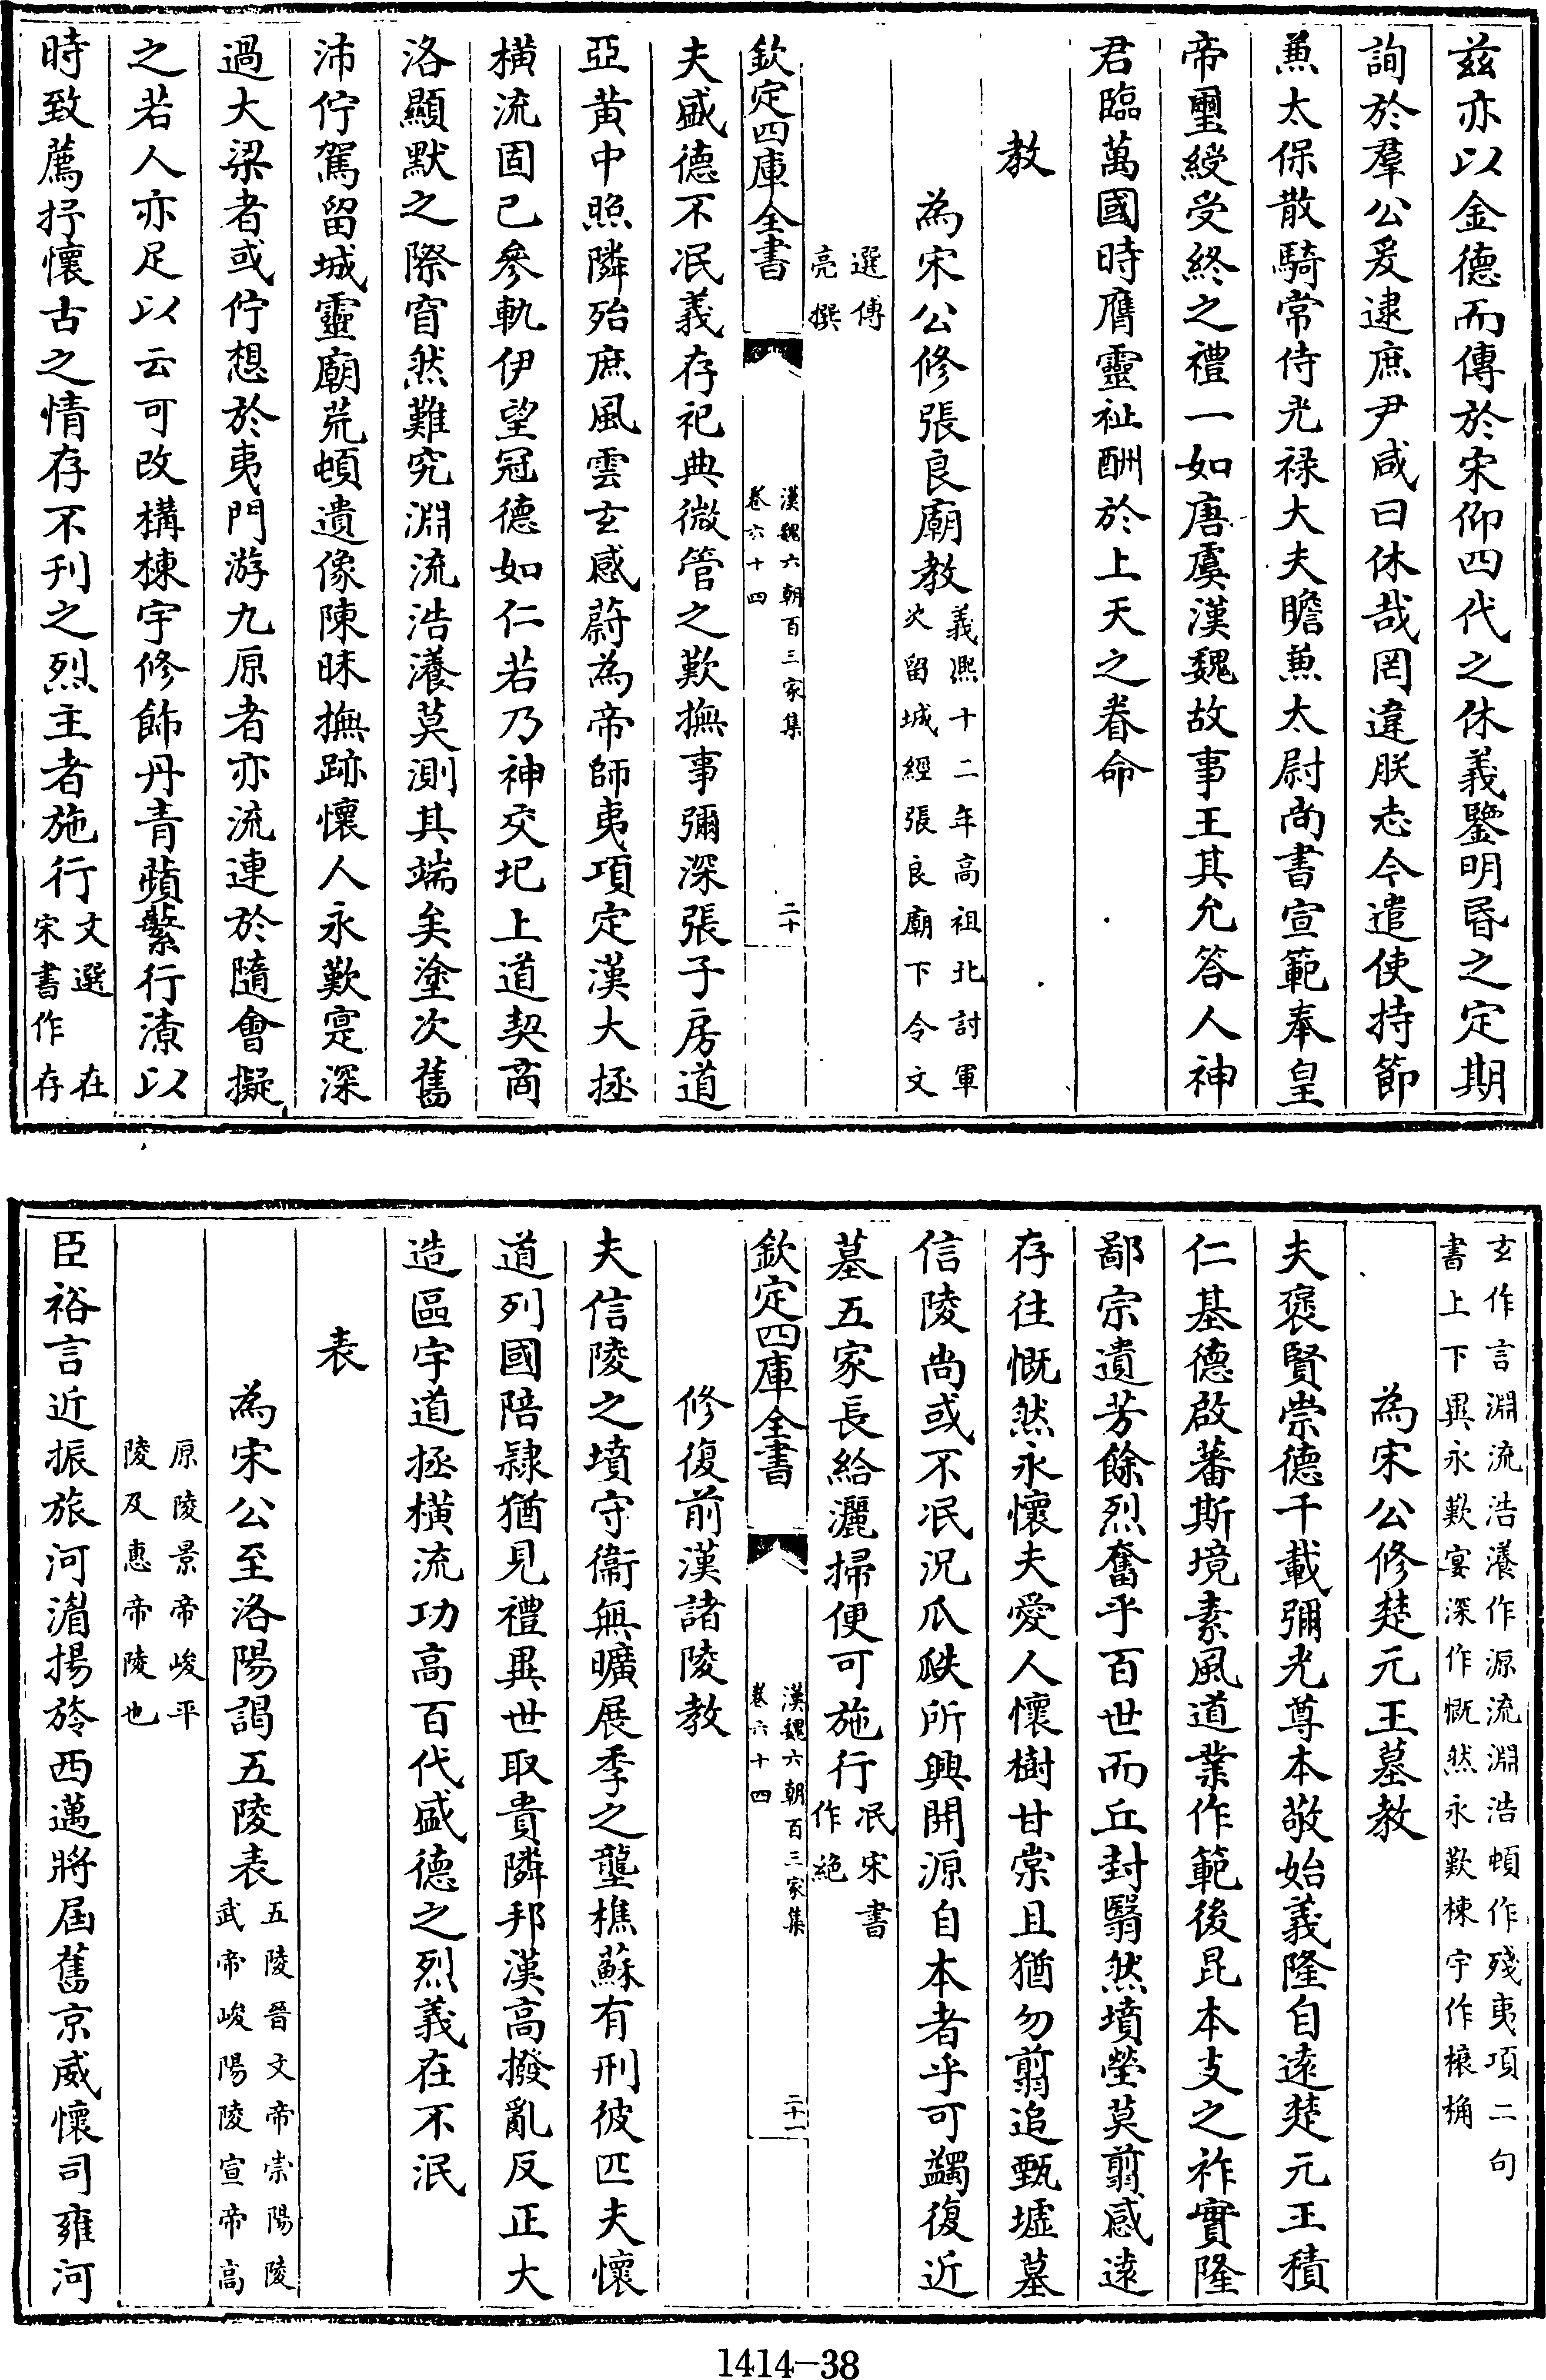 茲亦以金德而傳於宋仰四代之休義鑒明昏之定期
詢於羣公爰逮庶尹咸曰休哉罔違朕志今遣使持節
兼太保散騎常侍光祿大夫瞻兼太尉尚書宣範奉皇
帝璽綬受終之禮一如唐虞漢魏故事王其允答人神
君臨萬國時膺靈祉酬於上天之眷命
教
為宋公修張良廟教義熙十二年高祖北討軍
次留城經張良廟下令文
選傅
亮撰
欽定四庫全書
漢魏六朝百三家集
卷六十四
二十
夫盛德不泯義存祀典微管之歎撫事彌深張子房道
亞黃中照隣殆庶風雲玄感蔚為帝師夷項定漢大拯
橫流固已參軌伊望冠德如仁若乃神交圯上道契商
洛顯默之際窅然難究淵流浩瀁莫測其端矣塗次舊
沛佇駕留城靈廟荒頓遺像陳昧撫跡懷人永歎寔深
過大梁者或佇想於夷門游九原者亦流連於隨會擬
之若人亦足以云可改構棟宇修飾丹青蘋蘩行潦以
時致薦抒懷古之情存不刊之烈主者施行文選 在
宋書作 存
玄作言淵流浩瀁作源流淵浩頓作殘夷項二句
書上下異永歎寔深作慨然永歎棟宇作榱桷
為宋公修楚元王墓教
夫褒賢崇德千載彌光尊本敬始義隆自遠楚元王積
仁基德啟蕃斯境素風道業作範後昆本支之祚實隆
鄙宗遺芳餘烈奮乎百世而丘封翳然墳塋莫翦感遠
存往慨然永懷夫愛人懷樹甘棠且猶勿翦追甄墟墓
信陵尚或不泯況瓜瓞所興開源自本者乎可蠲復近
墓五家長給灑掃便可施行泯宋書
作絕
欽定四庫全書
漢魏六朝百三家集
卷六十四
二十一
修復前漢諸陵教
夫信陵之墳守衞無曠展季之壟樵蘇有刑彼匹夫懷
道列國陪隸猶見禮異世取貴隣邦漢高撥亂反正大
造區宇道拯橫流功高百代盛德之烈義在不泯
表
為宋公至洛陽謁五陵表五陵晉文帝崇陽陵
武帝峻陽陵宣帝高
原陵景帝峻平
陵及惠帝陵也
臣裕言近振旅河湄揚旍西邁將屆舊京威懷司雍河
1414-38